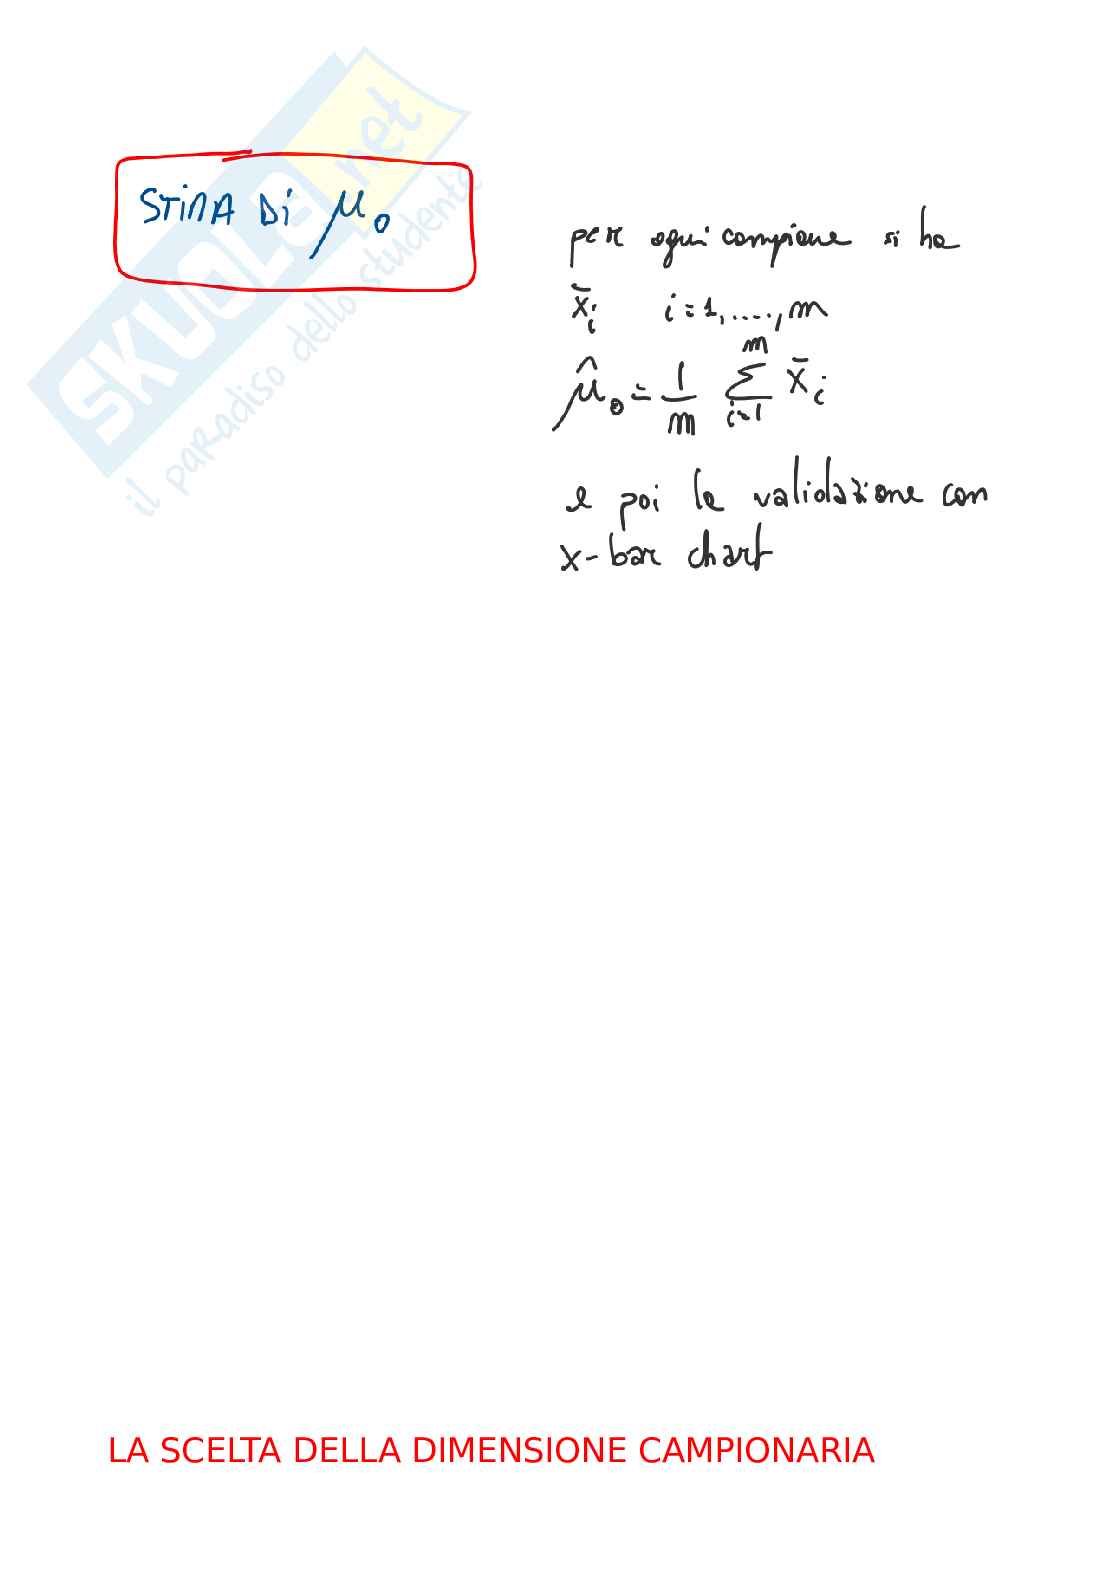 SKUOLA.net
il paradiso dello studente
STIMA DI μ₀
per ogni campione si ha
x̄ᵢ i = 1, ...., m
μ̂₀ = 1/m Σᵢ₌₁ᵐ x̄ᵢ
e poi la validazione con
x-bar chart
LA SCELTA DELLA DIMENSIONE CAMPIONARIA